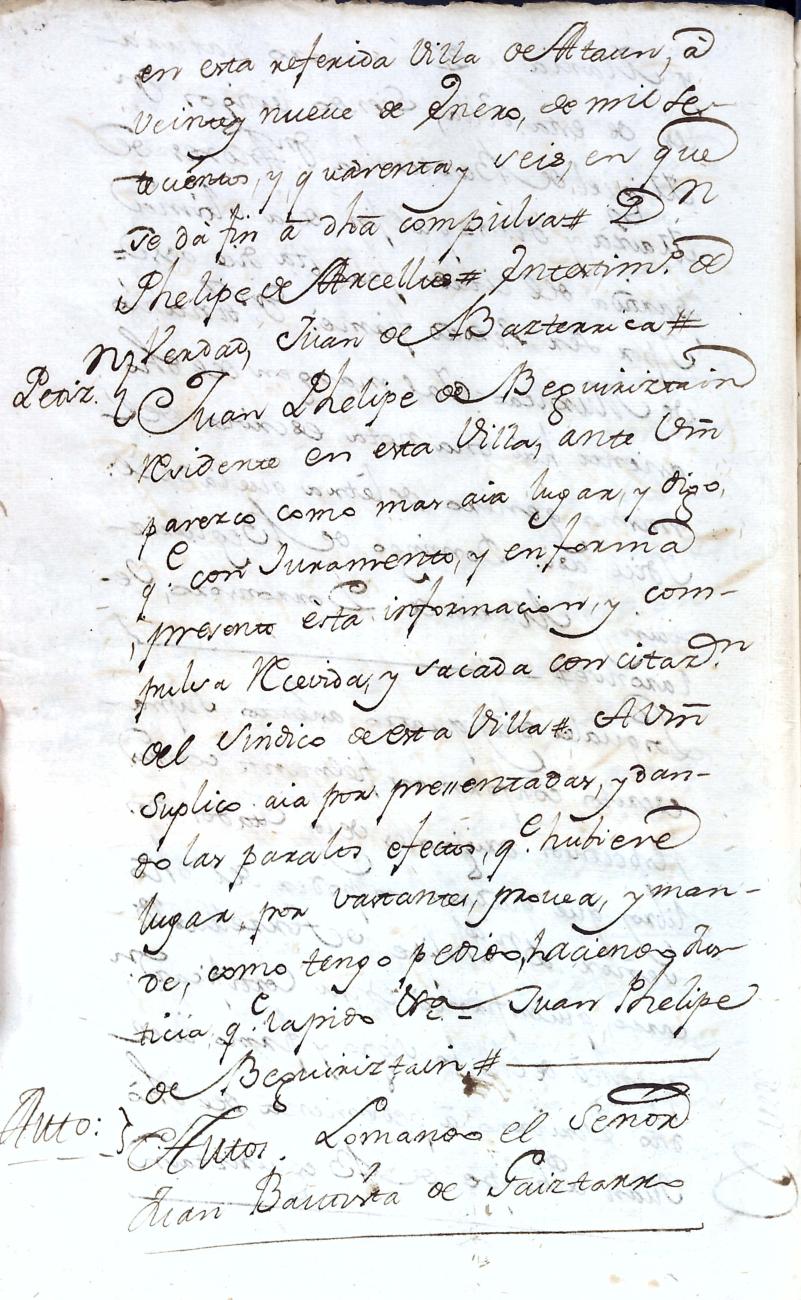 en esta referida Villa de Ataun, à
veinte y nueve de Enero, de mil se-
tecientos, y quàrenta y seis, en que
se dà fin à dhã compulsa# Dn
Phelipe de Arcelus# Intestim.º de
Verdad, Juan de Bazterrica#
Petiz.
Juan Phelipe de Beguiriztain
residente en esta Villa, ante Vm̃
parezco como mas aia lugar, y digo,
q.e con Juramento, y en forma
presento esta informacion, y com-
pulsa Recevida, y sacada con citaz.on
del Sindico de esta Villa# A Vm̃
Suplico aia por presentadas, y dan-
do las para los efectos, q.e hubiere
lugar, por vastantes, provea, y man-
de, como tengo pedido, haciendo Jus-
ticia, q.e la pido Juan Phelipe
de Beguiriztain#
Auto:
Autos. Lo mando el Señor
Juan Bautista de Gaiztarro